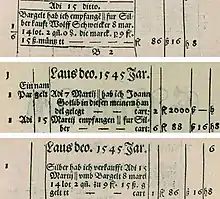 Adi 15 ditto.
Bargelt hab ich empfangē || fur Sil
ber kaufft Wolff Schweicker 8 mar.
14 lot. 2 qſt. 0 ß. die marck. 9 fl.
15 ß. müntz tt — fl 86 ß 16 h 8
B 2
1 Laus deo. 1545 Jar.
Einnam
1 Par gelt Adi 7 Martij || hab ich Joann
Gotlib in dieſen meinen han
del gelegt — cart: 2 fl 2000 ß — h
1 Adi 15 Martij empfangen || fur Sil
ber — cart: 6 fl 88 ß 16 h 8
Laus deo. 1545 Jar. 6
Silber hab ich verkaufft Adi 15
Martij || vmb Bargelt 8 marck
14 lot 2 qſt zu 9 fl. 15 ß. g
gelt tt — 1 fl 86 ß 16 h 8